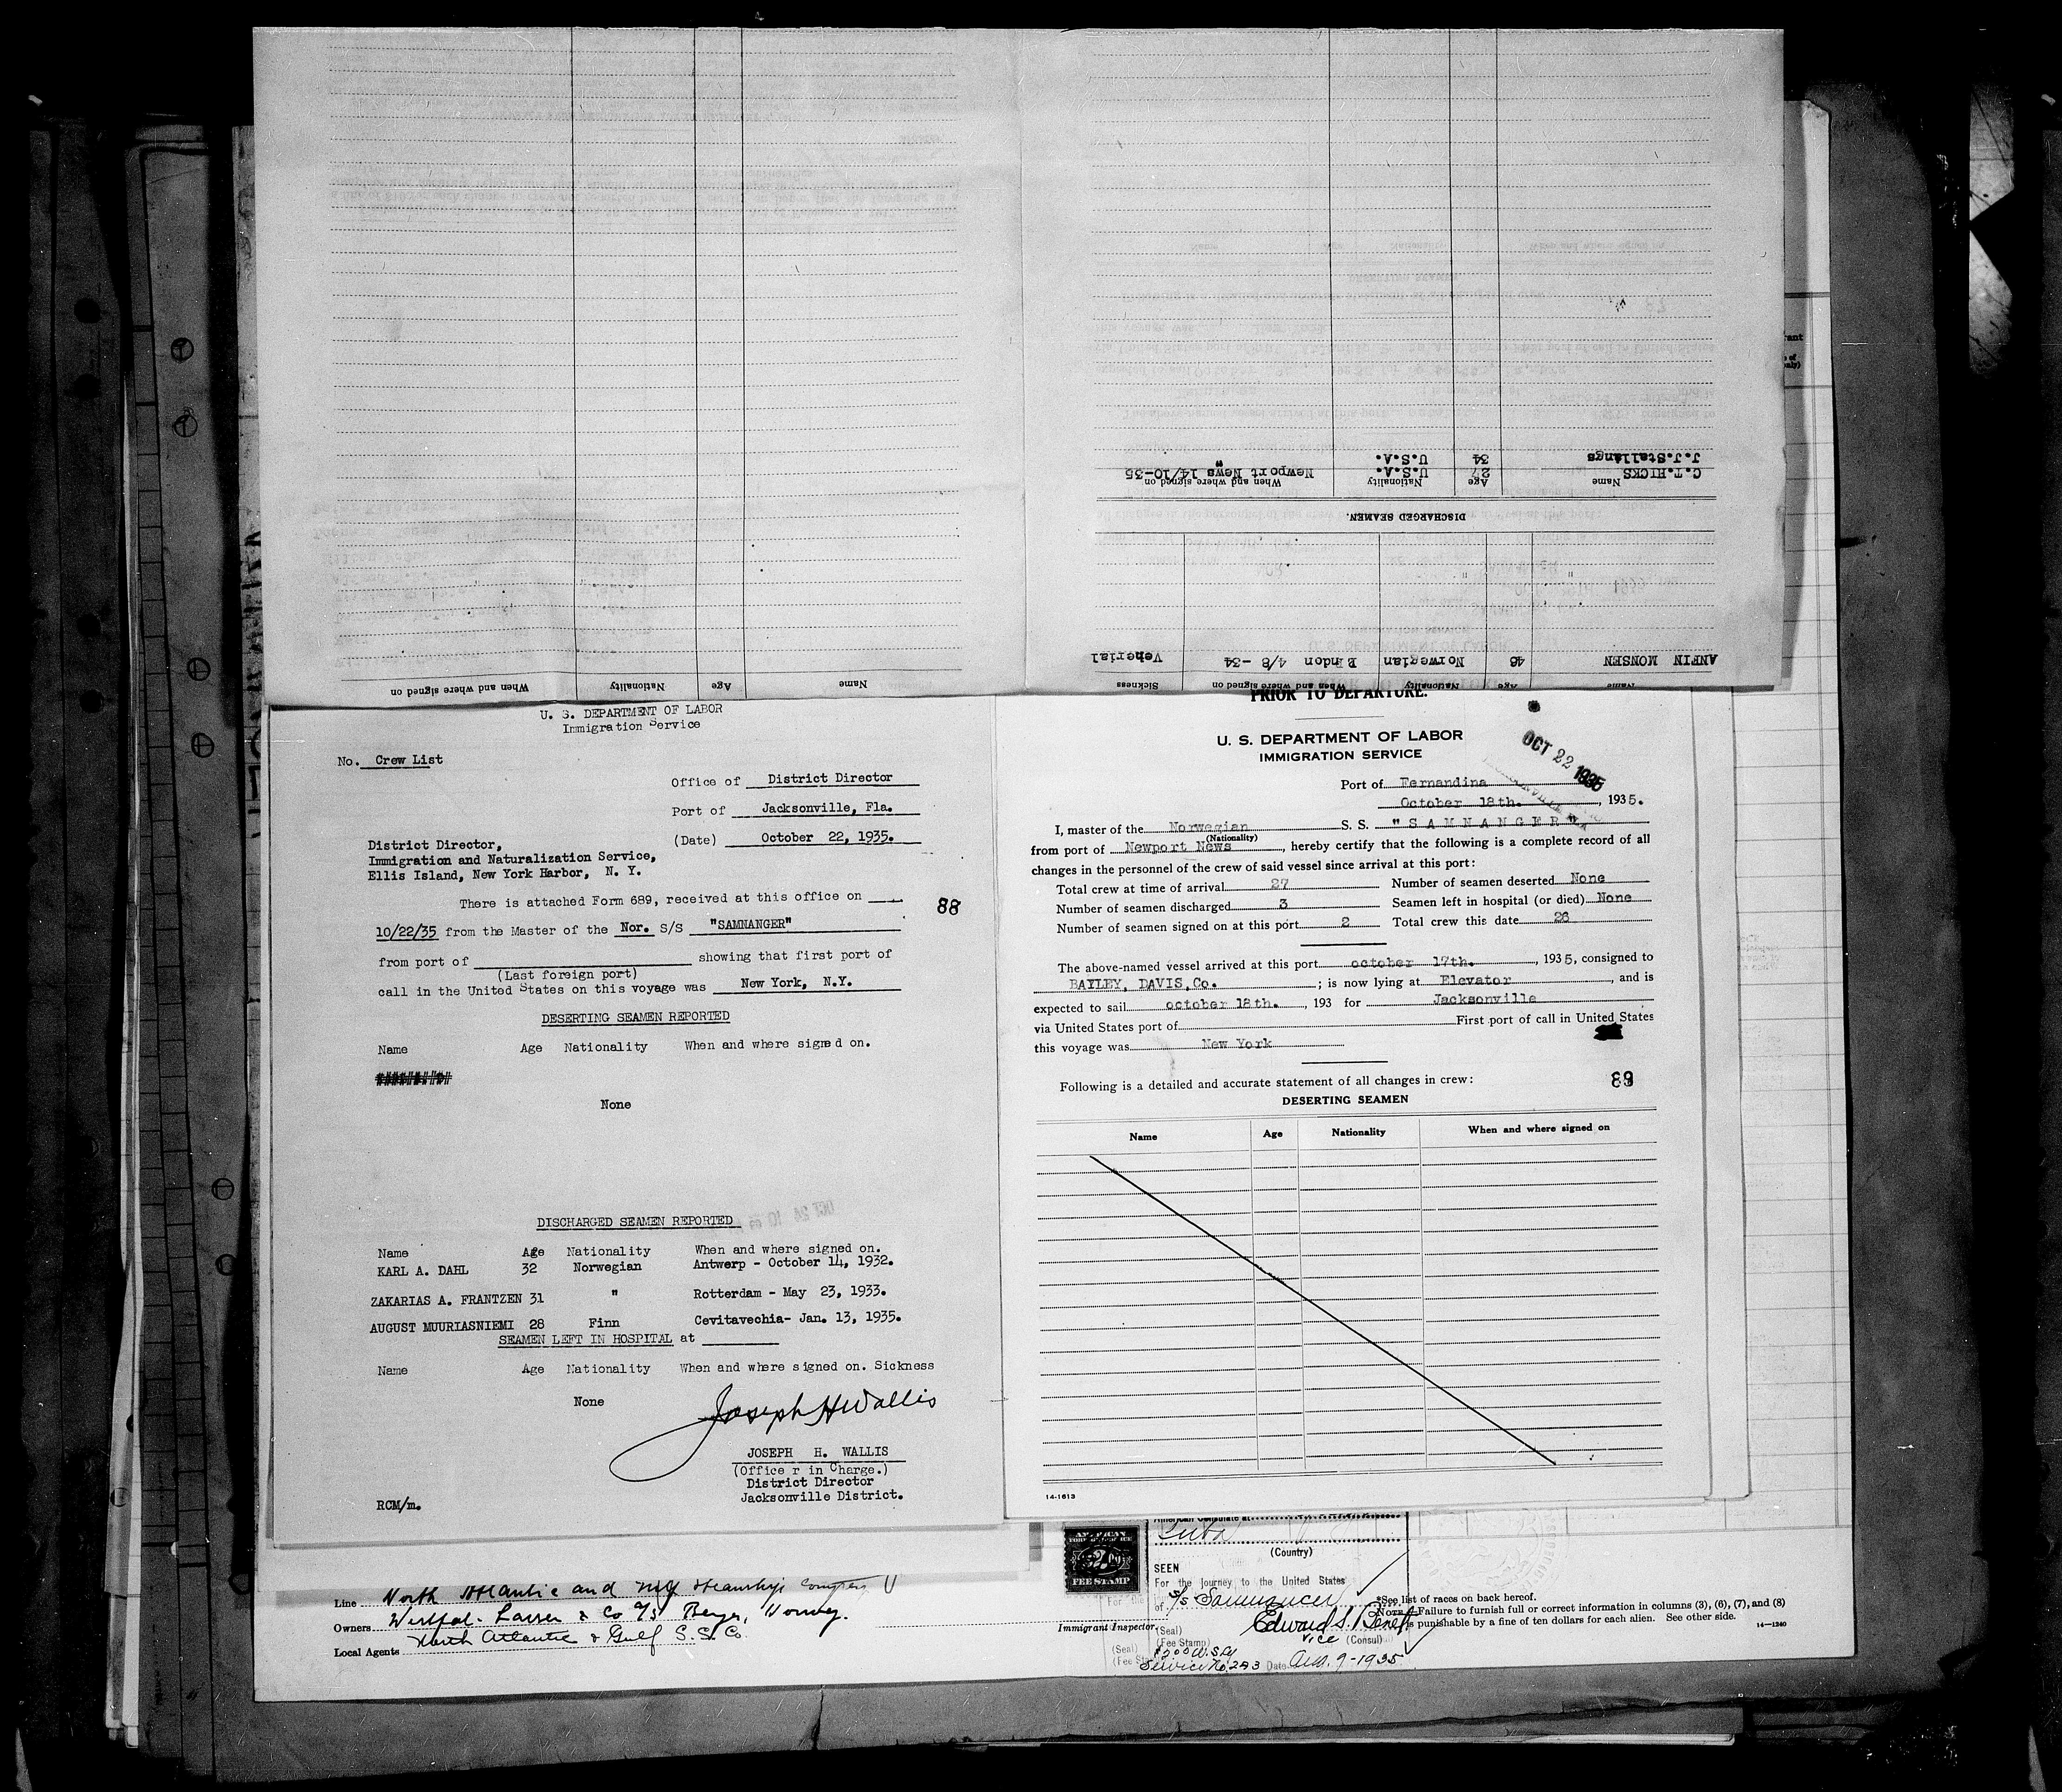 Name Age Nationality When and where signed on
Name Age Nationality When and where signed on Sickness
ANFIN MONSEN 46 Norwegian 4/8 -34 Venerial
" "
DISCHARGED SEAMEN.
Name Age Nationality When and where signed on
C.T.HICKS 27 U.S.A. Newport News 14/10-35
J.J.Stallings 34 U.S.A. "
U. S. DEPARTMENT OF LABOR
Immigration Service
No. Crew List
Office of District Director
Port of Jacksonville, Fla.
(Date) October 22, 1935.
District Director,
Immigration and Naturalization Service,
Ellis Island, New York Harbor, N. Y.
There is attached Form 689, received at this office on
88
10/22/35 from the Master of the Nor. S/S "SAMNANGER"
from port of showing that first port of
(Last foreign port)
call in the United States on this voyage was New York, N.Y.
DESERTING SEAMEN REPORTED
Name Age Nationality When and where signed on.
None
DISCHARGED SEAMEN REPORTED
OCT 24 10
Name Age Nationality When and where signed on.
KARL A. DAHL 32 Norwegian Antwerp - October 14, 1932.
ZAKARIAS A. FRANTZEN 31 " Rotterdam - May 23, 1933.
AUGUST MUURIASNIEMI 28 Finn Cevitavechia- Jan. 13, 1935.
SEAMEN LEFT IN HOSPITAL at
Name Age Nationality When and where signed on. Sickness
None
Joseph H Wallis
JOSEPH H. WALLIS
(Office r in Charge.)
District Director
Jacksonville District.
RCM/m.
PRIOR TO DEPARTURE.
U. S. DEPARTMENT OF LABOR
IMMIGRATION SERVICE
OCT 22 1935
Port of Fernandina
October 18th. , 1935.
I, master of the Norwegian S. S. "SAMNANGER"
(Nationality)
from port of Newport News , hereby certify that the following is a complete record of all
changes in the personnel of the crew of said vessel since arrival at this port:
Total crew at time of arrival 27 Number of seamen deserted None
Number of seamen discharged 3 Seamen left in hospital (or died) None
Number of seamen signed on at this port 2 Total crew this date 26
The above-named vessel arrived at this port october 17th. , 1935, consigned to
BAILEY, DAVIS,Co. ; is now lying at Elevator , and is
expected to sail october 18th. , 193 for Jacksonville
via United States port of First port of call in United States
this voyage was New York
Following is a detailed and accurate statement of all changes in crew:
89
DESERTING SEAMEN
Name Age Nationality When and where signed on
14-1613
American Consulate at
Cuba
(Country)
SEEN
For the journey to the United States
of S/s
AMERICAN
FEE STAMP
Line North Atlantic and
Owners Westfal-Larsen & Co A/S Bergen, Norway.
Local Agents North Atlantic & Gulf S.S. Co.
*See list of races on back hereof.
NOTE.—Failure to furnish full or correct information in columns (3), (6), (7), and (8)
is punishable by a fine of ten dollars for each alien. See other side.
14—1240
Immigrant Inspector.
Edward S.
Vice (Consul)
(Seal)
(Fee Stamp)
Service No. 293 Date Aug. 9-1935